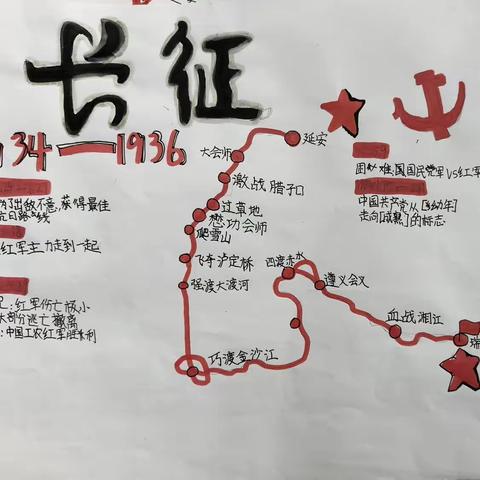 长征
34——1936
出敌不意,获得最佳
抗日路线
红军主力走到一起
:红军伤亡极小
大部分逃亡撤离
:中国工农红军胜利
延安
大会师
激战腊子口
过草地
懋功会师
爬雪山
飞夺泸定桥
强渡大渡河
巧渡金沙江
四渡赤水
遵义会议
血战湘江
瑞
国民党军VS红军
中国共产党从[幼年]
走向[成熟]的标志